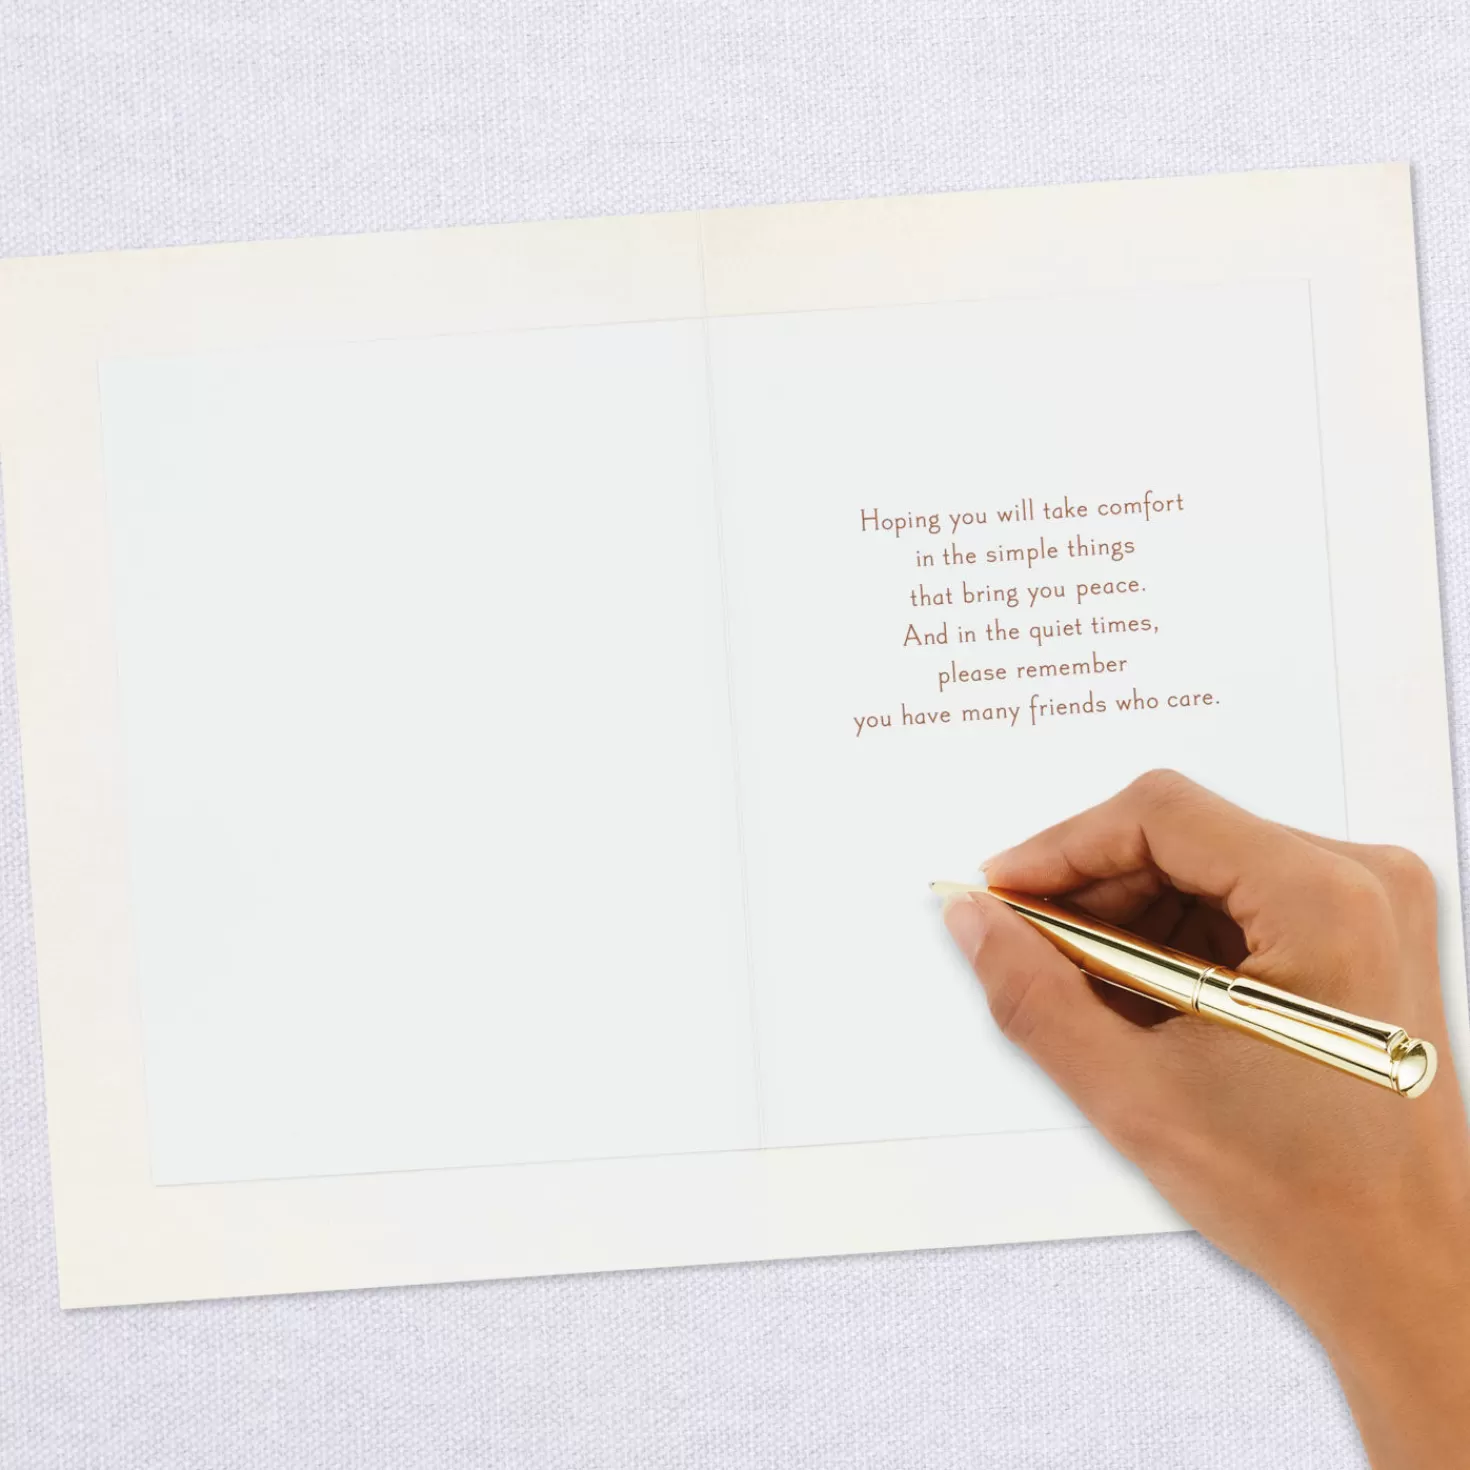 Hoping you will take comfort
in the simple things
that bring you peace.
And in the quiet times,
please remember
you have many friends who care.